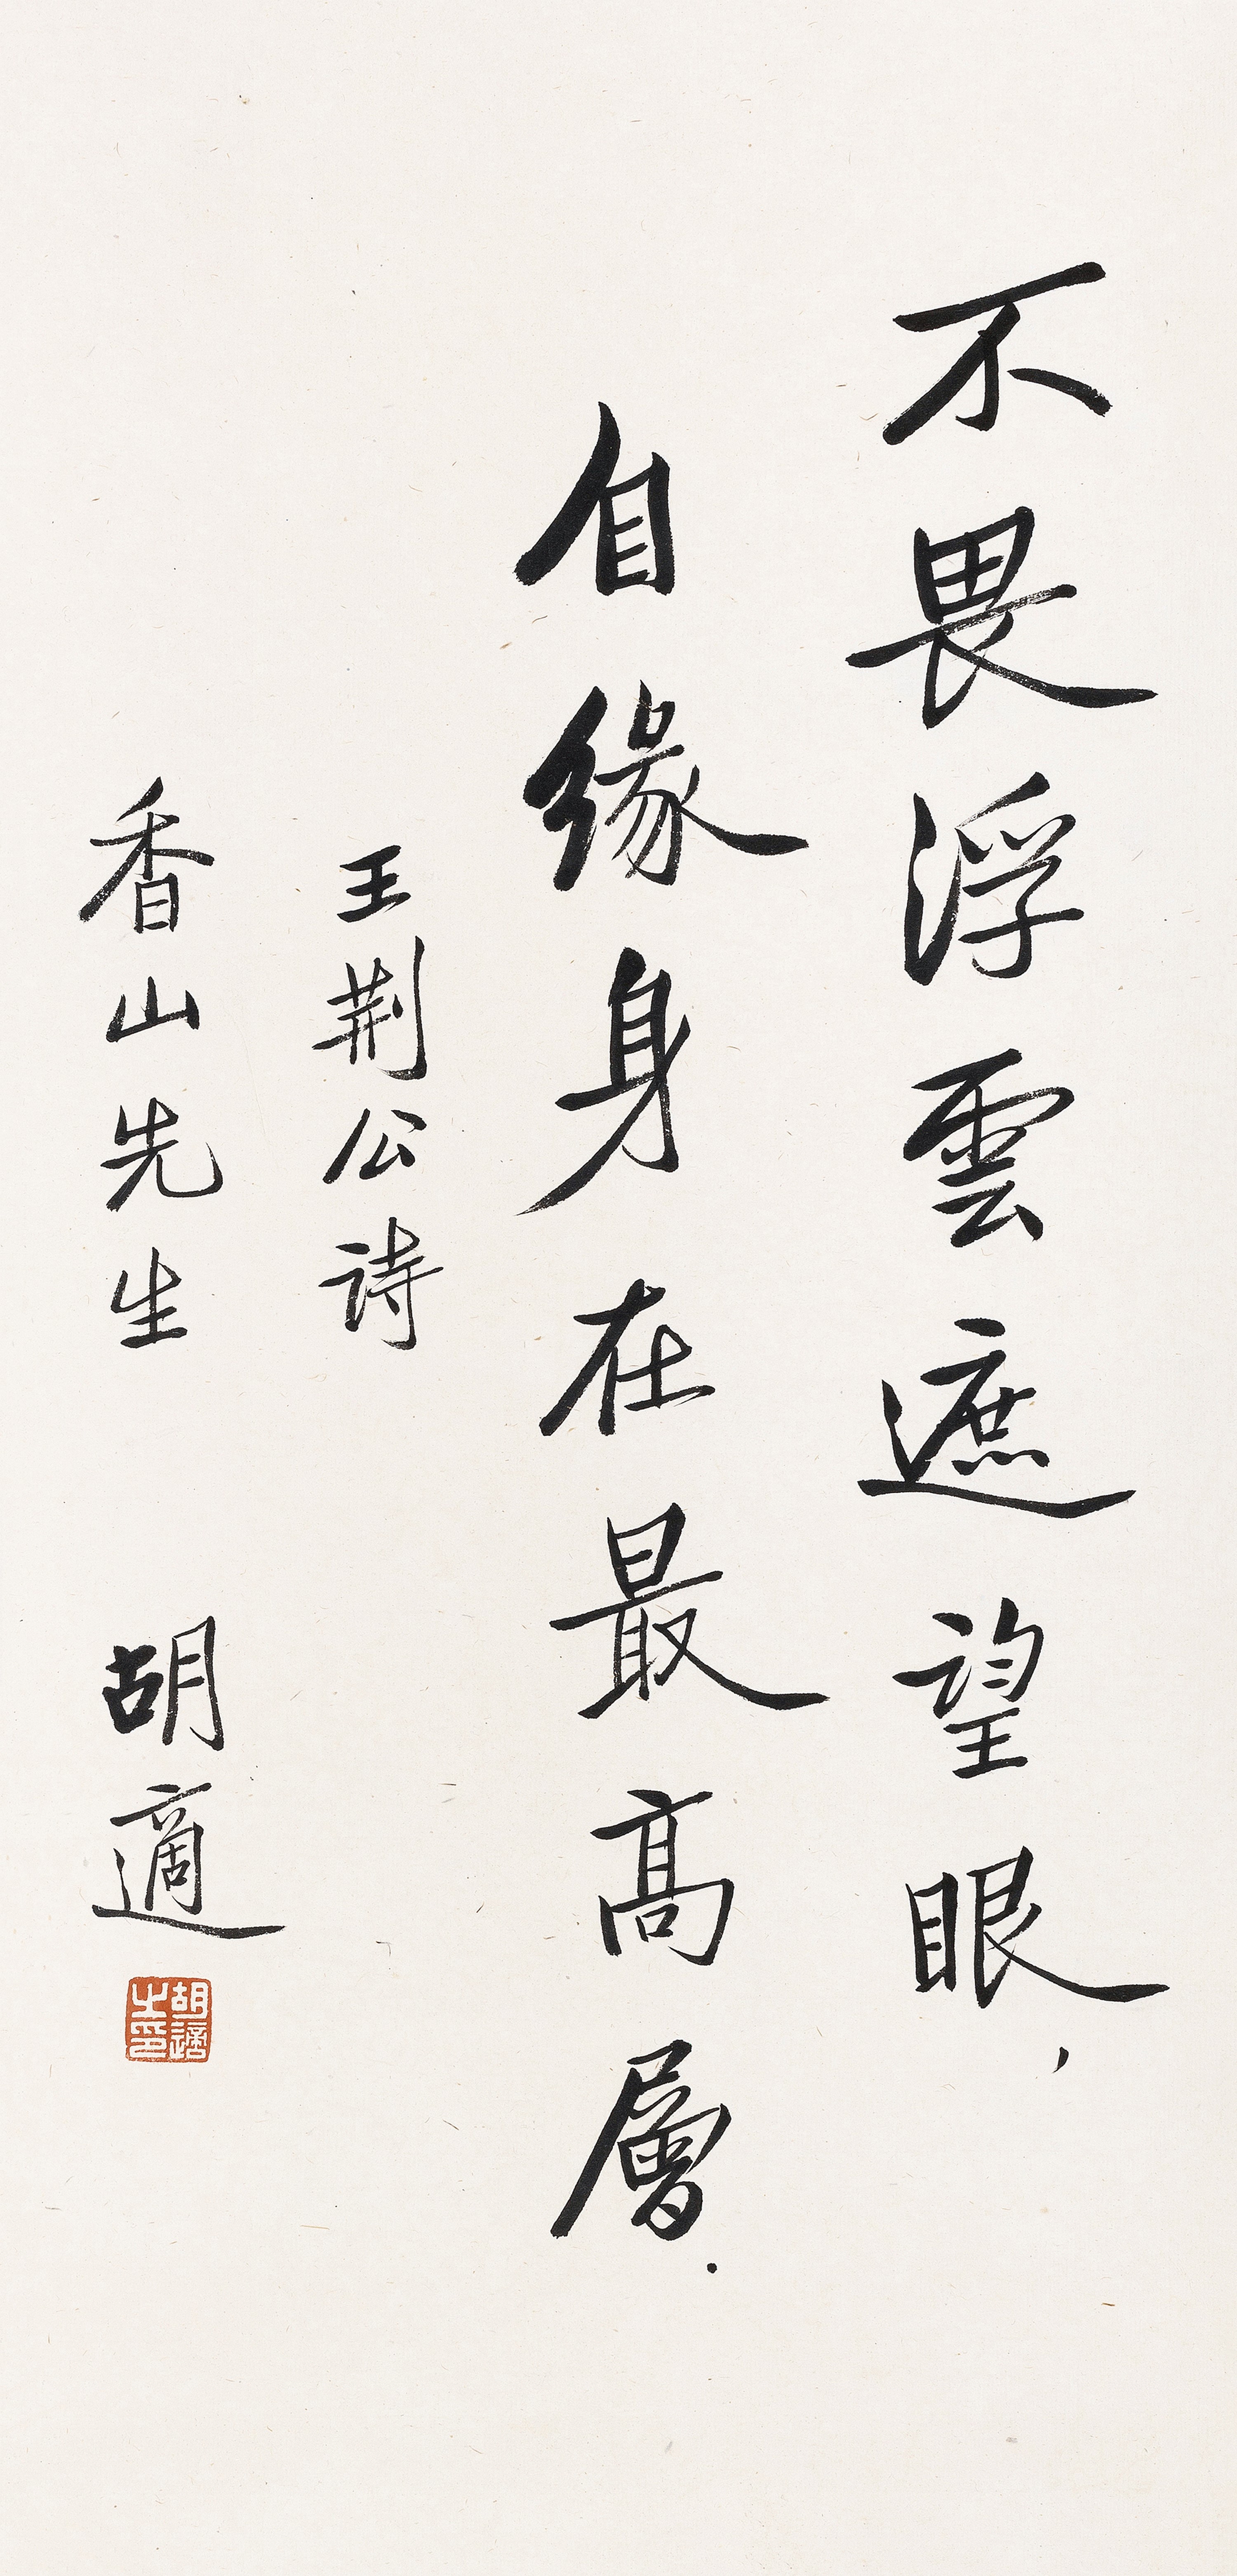 不畏浮雲遮望眼，
自緣身在最高層.
王荆公詩
香山先生 胡適
胡適之印